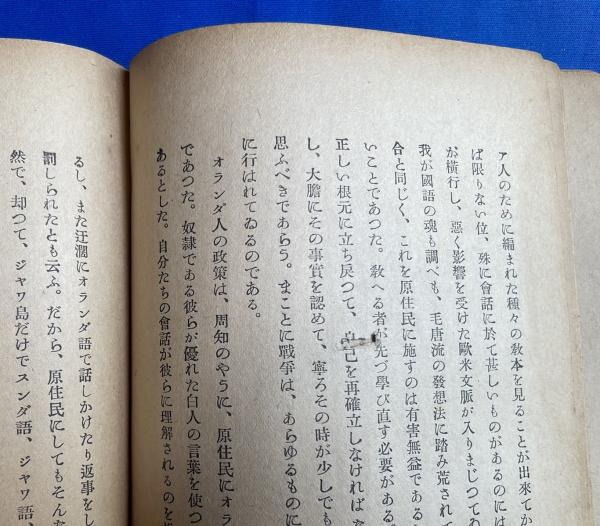 ア人のために編まれた種々の敎本を見ることが出來てか
ば限りない位、殊に會話に於て甚しいものがあるのには
が橫行し、惡く影響を受けた歐米文脈が入りまじつてわ
我が國語の魂も調べも、毛唐流の發想法に踏み荒されて
合と同じく、これを原住民に施すのは有害無益である
いことであつた。敎へる者が先づ學び直す必要がある
正しい根元に立ち戾つて、自己を再確立しなければ
し、大膽にその事實を認めて、寧ろその時が少しでも
思ふべきであらう。まことに戰爭は、あらゆるものに
に行はれてゐるのである。
オランダ人の政策は、周知のやうに、原住民にオラ
であつた。奴隷である彼らが優れた白人の言葉を使つ
あるとした。自分たちの會話が彼らに理解されるのを
るし、また迂濶にオランダ語で話しかけたり返事をし
罰しられたとも云ふ。だから、原住民にしてもそんな
然で、却つて、ジャワ島だけでスンダ語、ジャワ語、